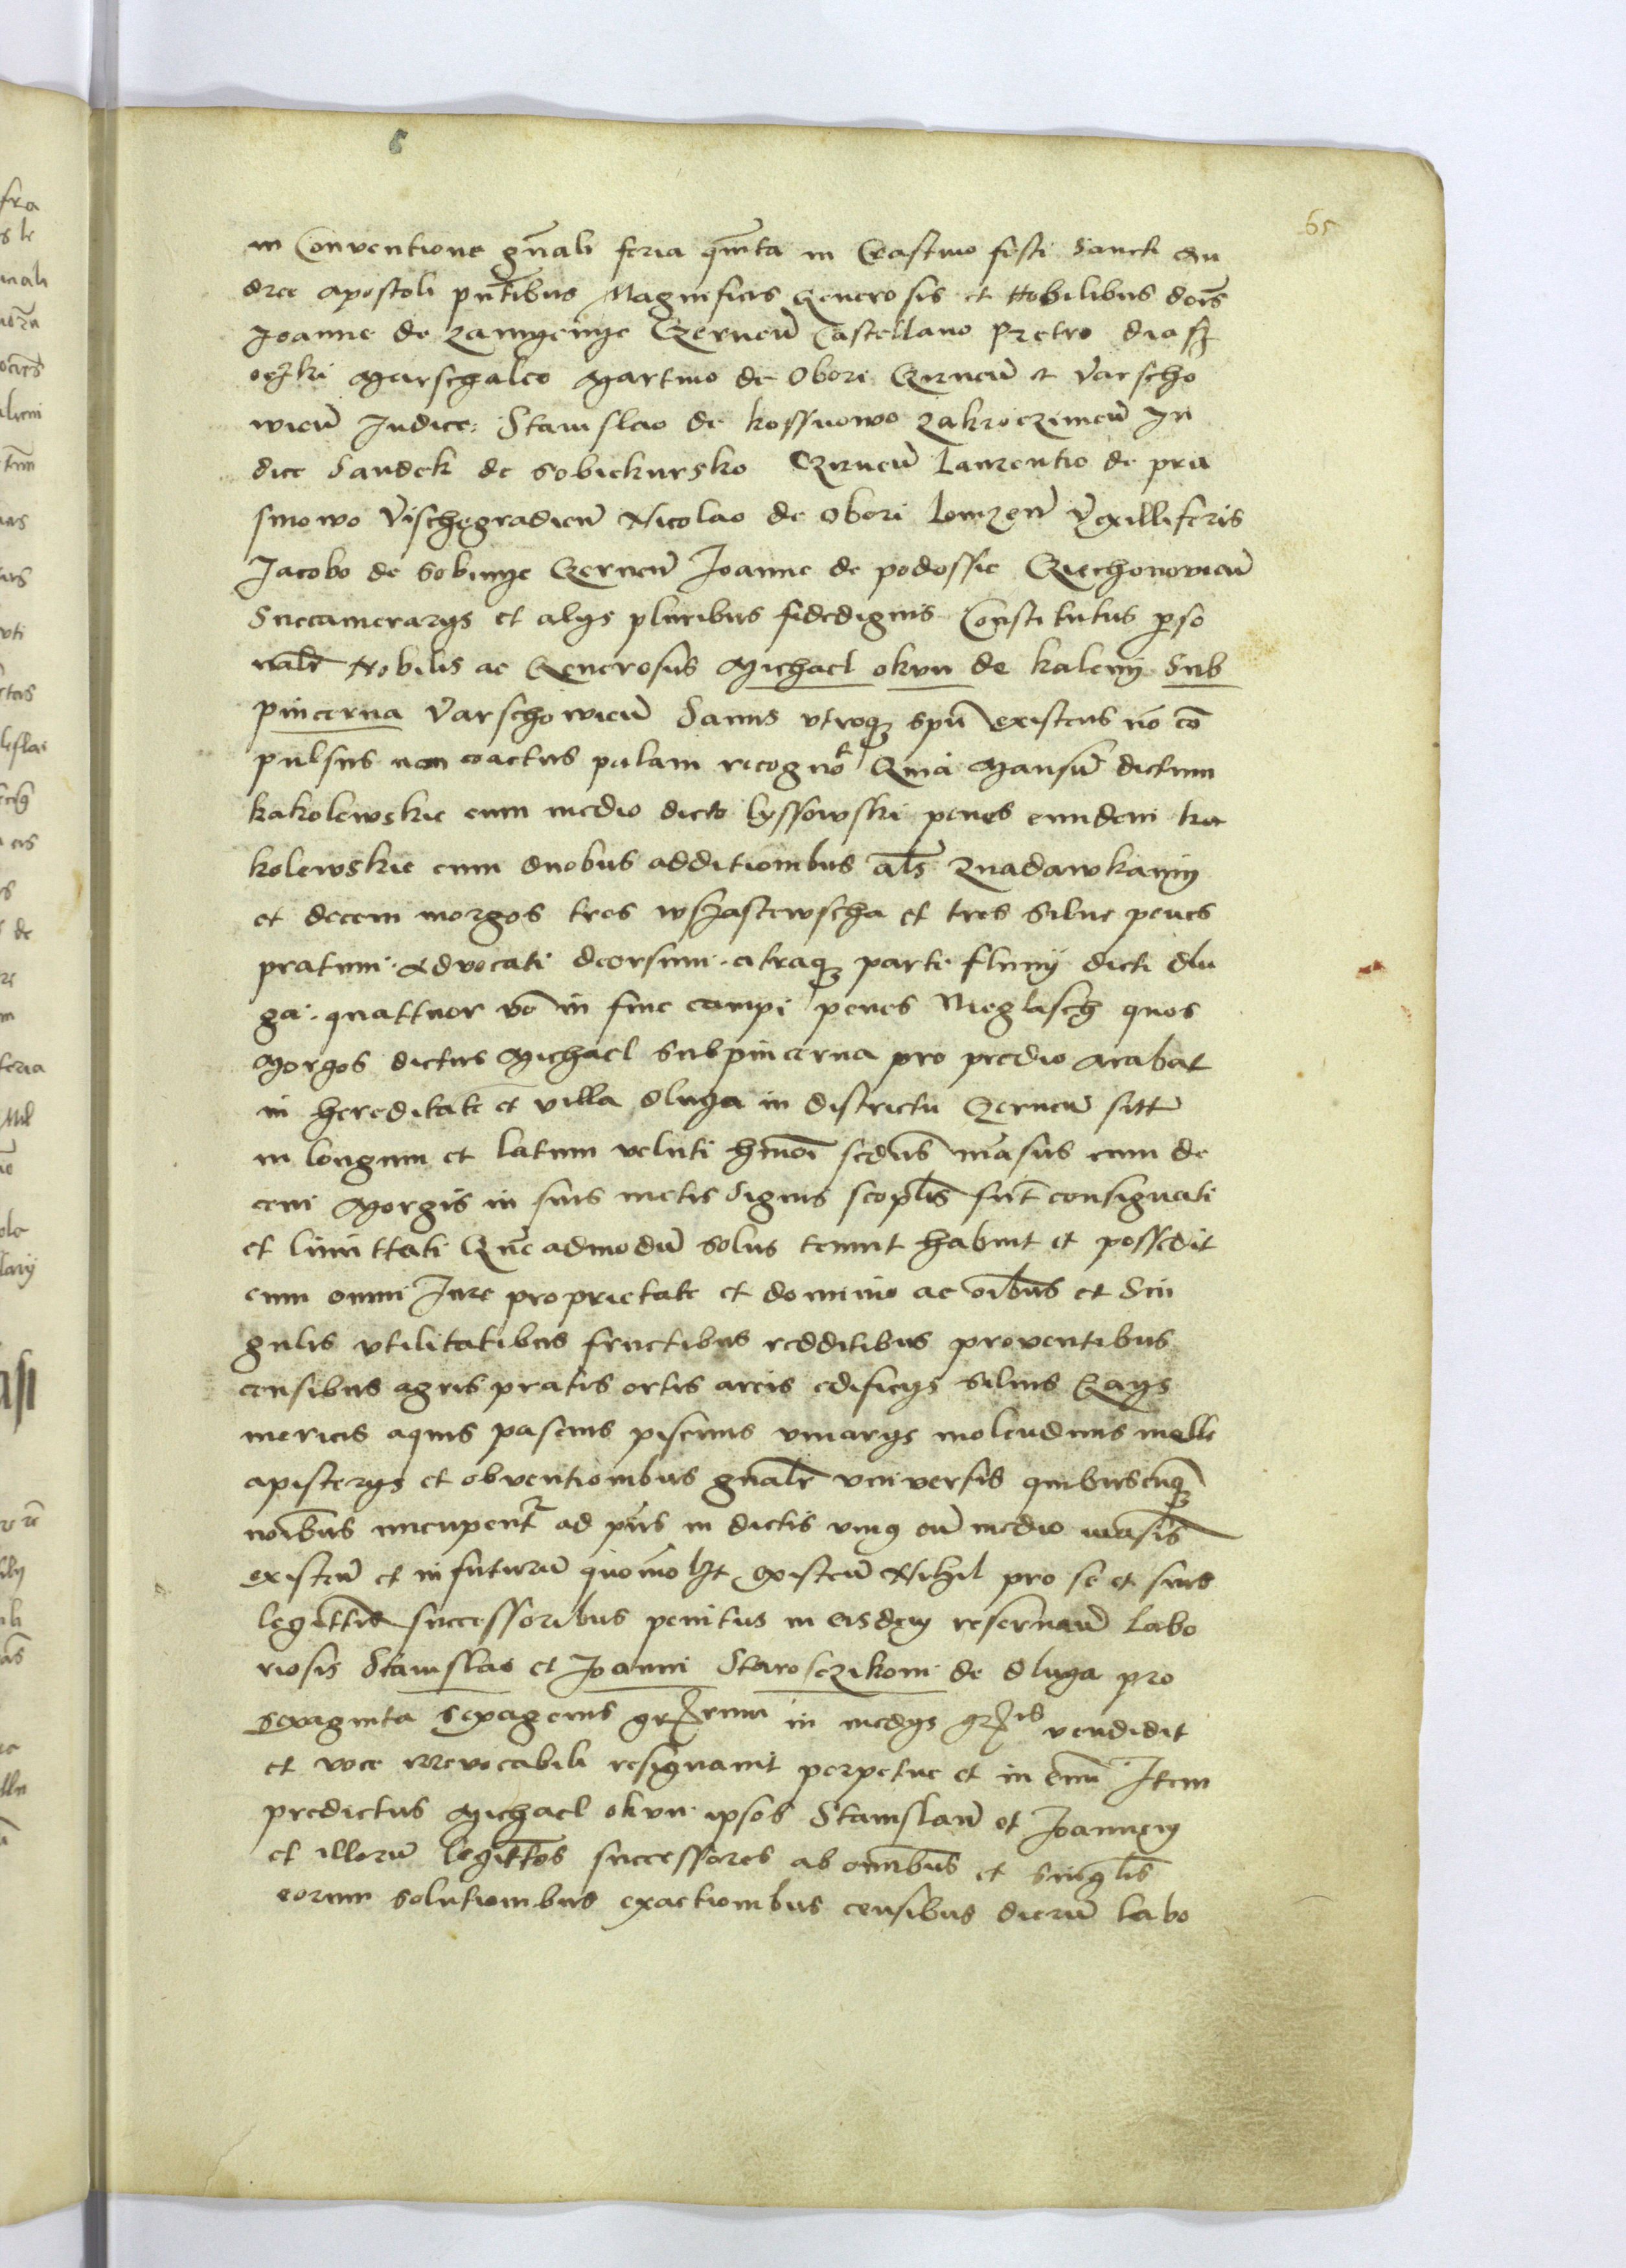 65
in Conventione gn̄ali feria qūīnta in Crastino festi Sancti An
dree apostoli pn̄tibus Magnificis Generosis et Nobilibus dōīs
Joanne de zamyenye Czerneñ Castellano Pzetro
Marschalco Martino de Obori Czrneñ et Varscho
wieñ Judice Stanislao de kossnowo zakroczimeñ Ju
dice Sandek de Sobiekursko Czrneñ Laurentio de pra
smowo Vischegradieñ Nicolao de Obori Lomzeñ Vexilliferis
Jacobo de Sobinye Czerneñ Joanne de podossie Cziechonovieñ
Succamerarys et alys pluribus fidedignis Constitutus p̱so
nalr̄ Nobilis ac Generosus Michael okvn de kaleny Sub
pincerna Varschowieñ Sanus vtroq̨ spū existens nō cō
pulsus non coactus palam recognot Quia Mansū dictum
kakolewskie cum medio dicto lyssowski penes eundem ka
kolewskie cum duobus additionibus als̄ znadawkamy
et decem morgos tres et tres silue penes
pratum Advocati deorsum citraq̨ parte fluuy dicti dlu
ga quattuor vō in fine campi penes Meglasch quos
Morgos dictus Michael Subpincerna pro predio arabat
in hereditate et villa dluga in districtu Czerneñ sitt̄
in longum et latum veluti hmōi sedūs māsus cum de
cem Morgis in suis metis Signis scoplīs sūt consignati
et limittati Quēadmodū solus tenuit habuit et possedit
cum omni Jure proprietate et dominio ac oībus et Sin
gulis vtilitatibus fructibus redditibus proventibus
censibus agris pratis ortis areis edificys siluis Gays
mericis aquis pascuis piscinis vinarys molendinis melle
apisterys et obventionibus gn̄alr̄ vniversis quibuscūq̨
nōībus nuncupentr ad pn̄s in dictis cū medio māsis
existeñ et in futurū quomōlzt existeñ Nihil pro se et suis
legittīs successoribus penitus in eisdem reseruañd Labo
riosis Stanislao et Joanni Staroseczikom de dluga pro
Sexaginta sexagenis grꝛrum in medys grꝛis vendidit
et voce irrevocabili resignauit perpetue et in ēuū Item
predictus Michael okvn ipsos Stanislaū et Joannem
et illorū legittōs successores ab omībus et singlīs
eorum solutionibus exactionibus censibus dierū labo